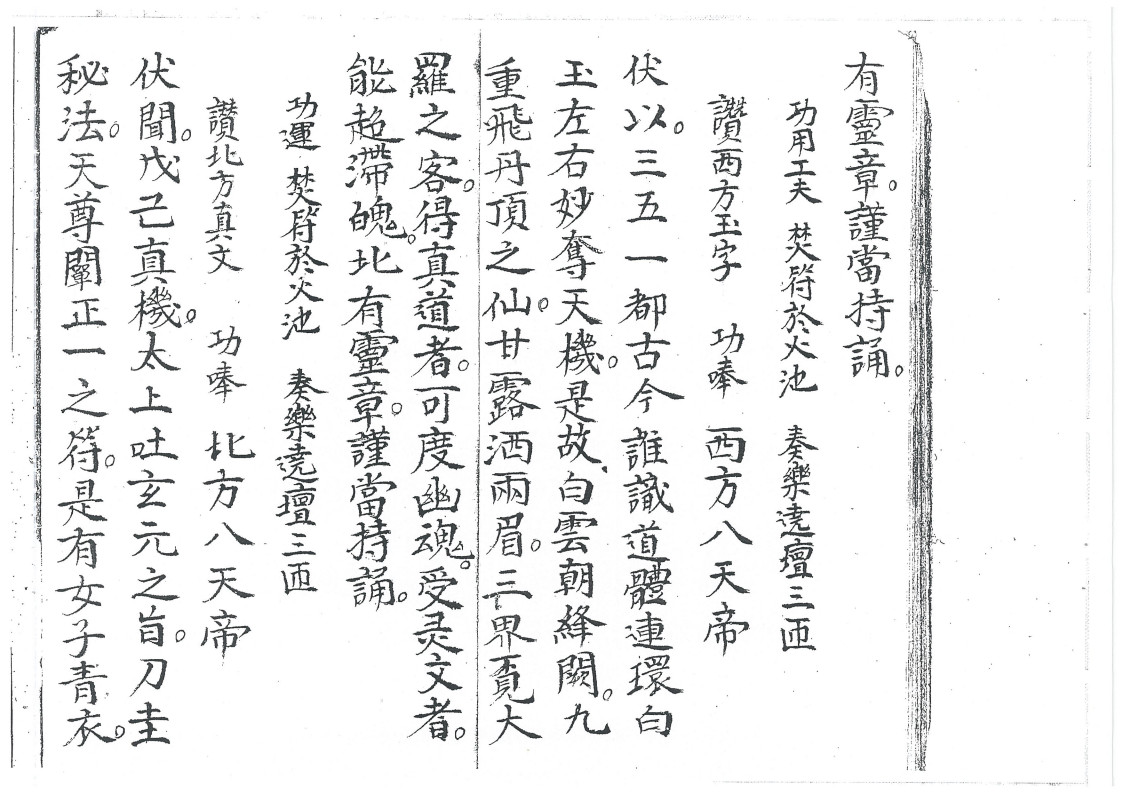 有靈章。謹當持誦。
功用工夫 焚符於火池 奏樂遶壇三匝
讚西方玉字 功奉 西方八天帝
伏以。三五一都古今誰識道體連環白
玉左右妙奪天機。是故白雲朝絳闕。九
重飛丹頂之仙。甘露洒兩眉。三界覔大
羅之客。得真道者。可度幽魂。受灵文者。
能超滯魄。北有靈章。謹當持誦。
功運 焚符於火池 奏樂遶壇三匝
讚北方真文 功奉 北方八天帝
伏聞。戊己真機。太上吐玄元之旨。刀圭
秘法。天尊闡正一之符。是有女子青衣。